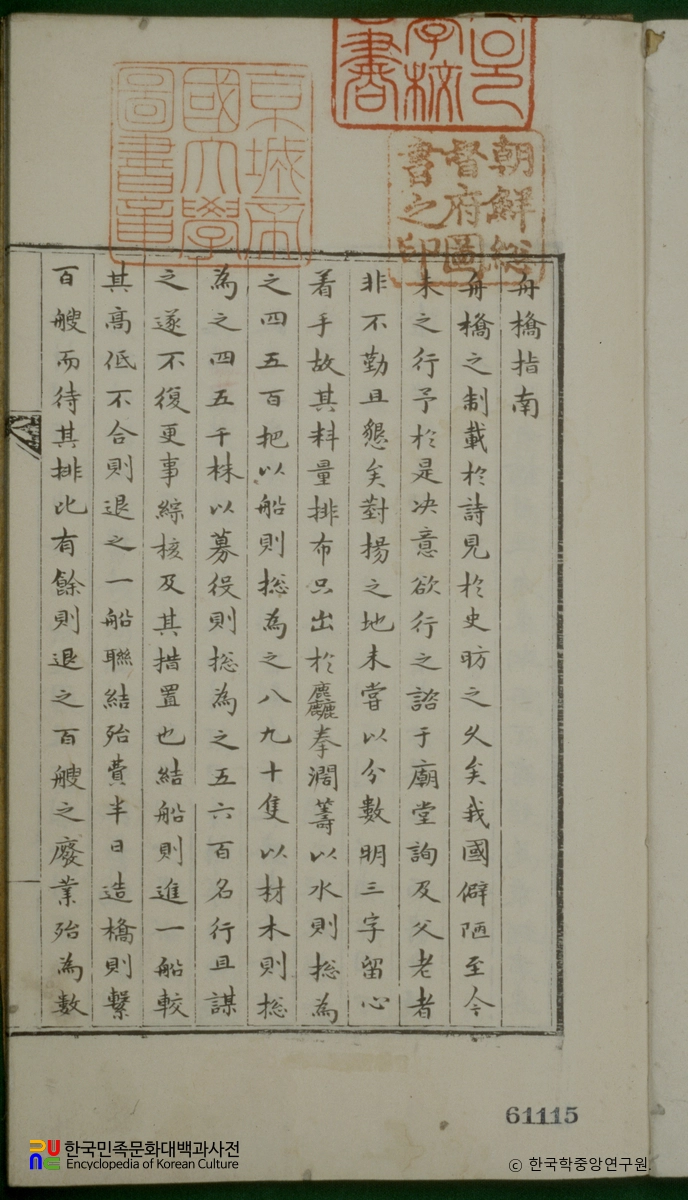 朝鮮総
督府圖
書之印
京城帝
國大學
圖書章
舟橋指南
舟橋之制載於詩見於史昉之久矣我國僻陋至今
未之行予於是决意欲行之諮于廟堂詢及父老者
非不勤且懇矣對揚之地未嘗以分數明三字留心
着手故其料量排布只出於麤拳濶籌以水則揔為
之四五百把以船則揔為之八九十隻以材木則揔
為之四五千株以募役則揔為之五六百名行且謀
之遂不復更事綜核及其措置也結船則進一船較
其高低不合則退之一船聯結殆費半日造橋則繫
百艘而待其排比有餘則退之百艘之廢業殆為數
61115
한국민족문화대백과사전
Encyclopedia of Korean Culture
© 한국학중앙연구원